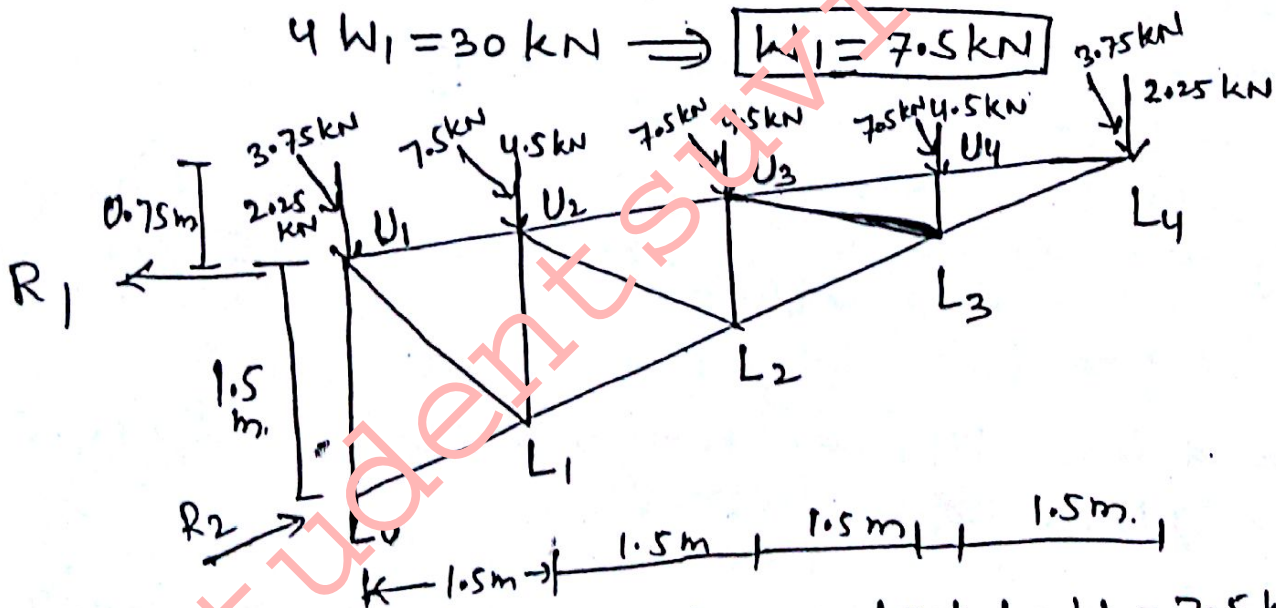 4 W1 = 30 kN ⟹ W1 = 7.5 kN
3.75 kN
2.25 kN
3.75 kN
7.5 kN
4.5 kN
7.5 kN
4.5 kN
7.5 kN
4.5 kN
0.75m
2.25 kN
U1
U2
U3
U4
L4
R1
L3
1.5 m.
L2
L1
R2
L0
1.5m
1.5m
1.5m
1.5m.
7.5 k
udentsuvi